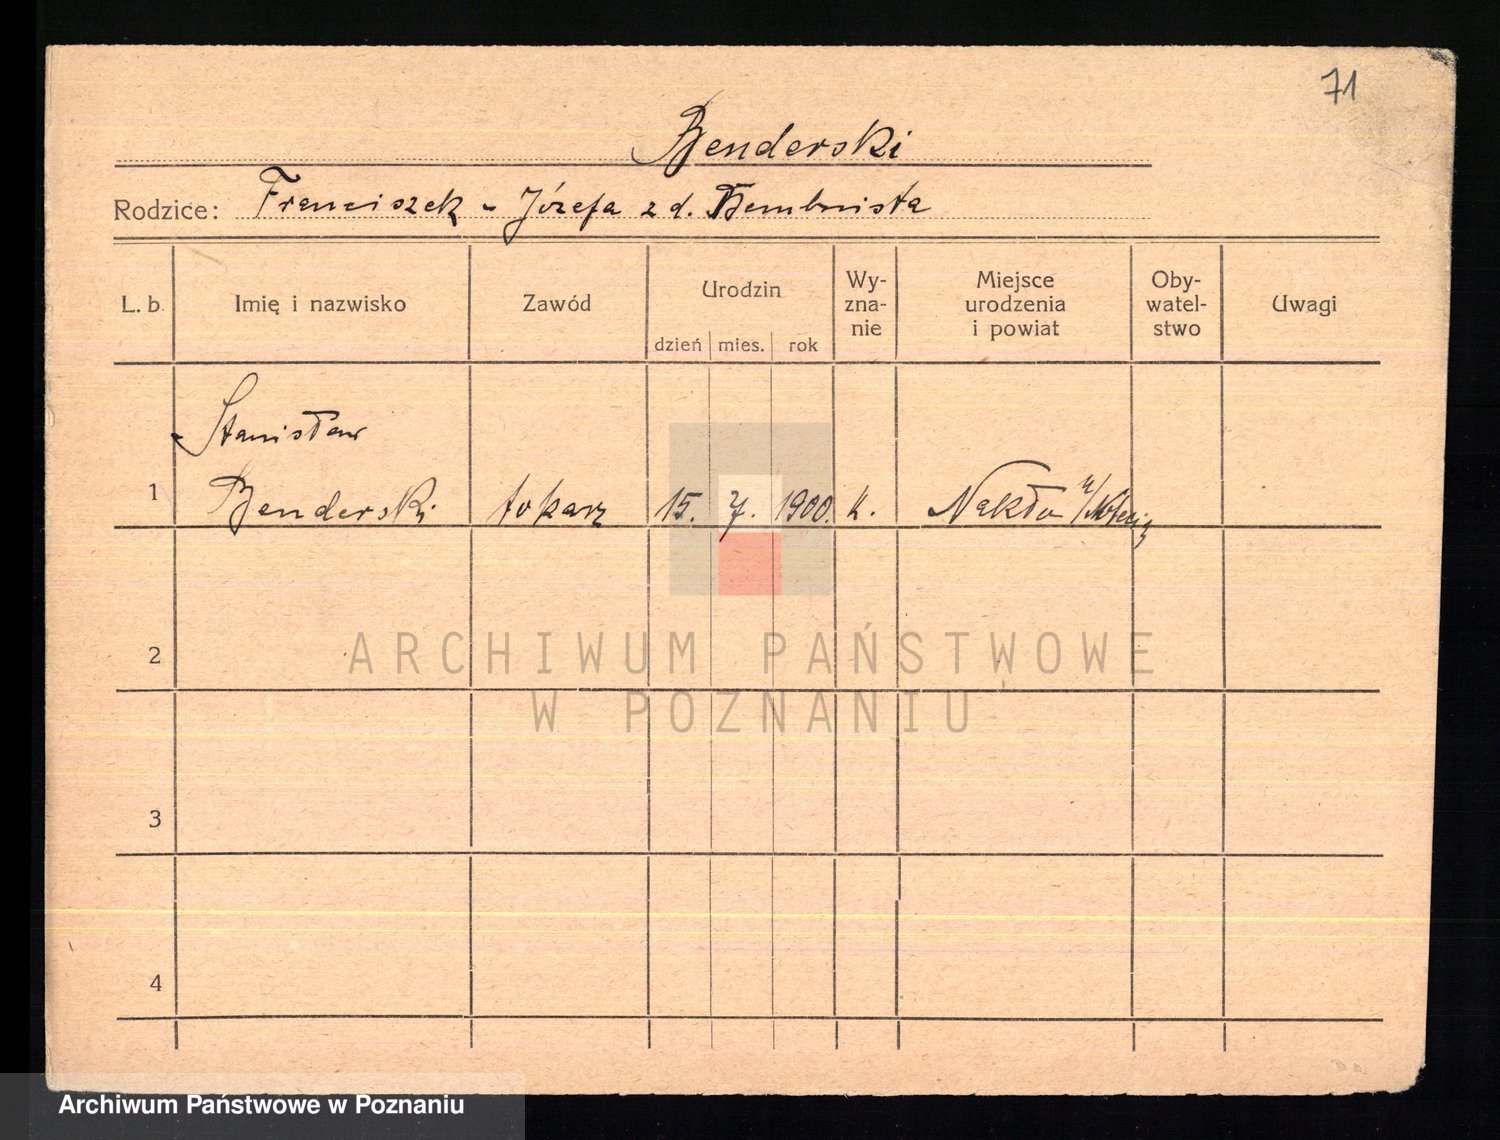 71
Benderski
Rodzice: Franciszek - Józefa z d.
L. b. Imię i nazwisko Zawód Urodzin Wy-zna-nie Miejsce urodzenia i powiat Oby-watel-stwo Uwagi
dzień mies. rok
Stanisław
1 Benderski tokarz 15. 7. 1900. k. Nakło n/Notecią
2
3
4
ARCHIWUM PAŃSTWOWE
W POZNANIU
Archiwum Państwowe w Poznaniu